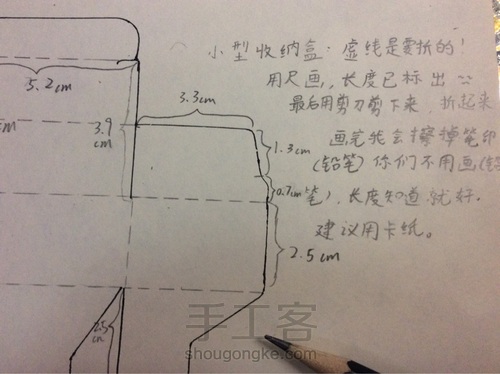 小型收纳盒：虚线是要折的！
用尺画，长度已标出
最后用剪刀剪下来，折起来
画完我会擦掉笔印
(铅笔)你们不用画(铅
笔)，长度知道就好。
建议用卡纸。
5.2cm
3.3cm
3.9
cm
1.3cm
0.7cm
2.5cm
2.5
cm
cm
手工客
shougongke.com